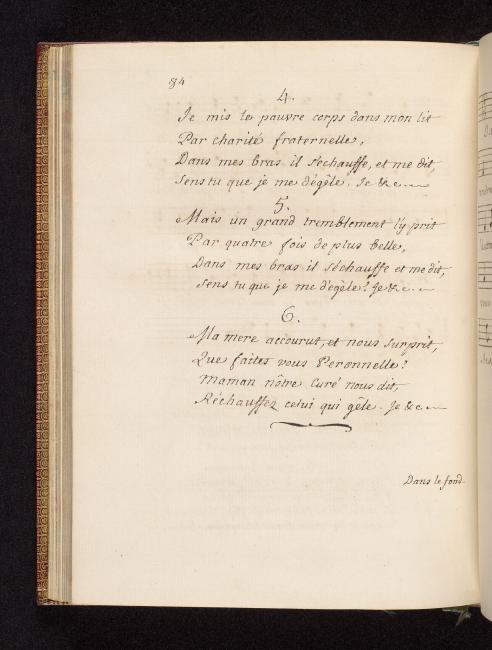 84
4.
Je mis le pauvre corps dans mon lit
Par charité fraternelle,
Dans mes bras il s'échauffe, et me dit,
Sens tu que je me dégèle. Je &c.
5.
Mais un grand tremblement l'y prit
Par quatre fois de plus belle,
Dans mes bras il s'échauffe et me dit,
Sens tu que je me d'égèle? Je &c.
6.
Ma mere accourut, et nous surprit,
Que faites vous Peronnelle?
Maman nôtre Curé nous dit,
Réchauffez celui qui gêle. Je &c.
Dans le fond.